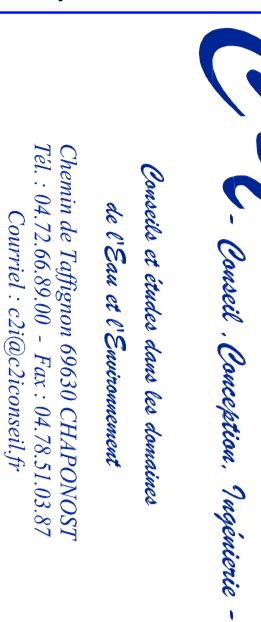 - Conseil , Conception, Ingénierie -
Conseils et études dans les domaines
de l'Eau et l'Environnement
Chemin de Taffignon 69630 CHAPONOST
Tél. : 04.72.66.89.00 - Fax : 04.78.51.03.87
Courriel : c2i@c2iconseil.fr